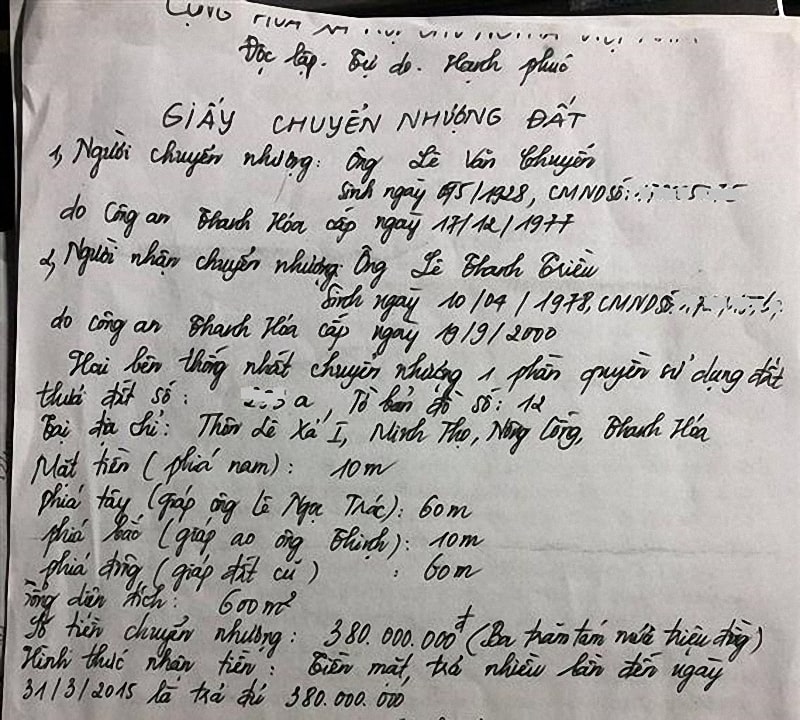 Độc lập. Tự do. Hạnh phúc
GIẤY CHUYỂN NHƯỢNG ĐẤT
1, Người chuyển nhượng: Ông Lê Văn Chuyến
Sinh ngày /1928, CMND Số:
do Công an Thanh Hóa cấp ngày 17/12/1977
2, Người nhận chuyển nhượng: Ông Lê Thanh Triều
Sinh ngày 10/04/1978, CMND Số:
do công an Thanh Hóa cấp ngày 19/9/2000
Hai bên thống nhất chuyển nhượng 1 phần quyền sử dụng đất
thửa đất số: a, Tờ bản đồ số: 12
Tại địa chỉ: Thôn Lê Xá I, Minh Thọ, Nông Cống, Thanh Hóa
Mặt tiền (phía nam): 10m
phía tây (giáp ông Lê Ngọc Trác): 60m
phía bắc (giáp ao ông Thịnh): 10m
phía đông (giáp đất cũ): 60m
Tổng diện tích: 600m²
Số tiền chuyển nhượng: 380.000.000đ (Ba trăm tám mươi triệu đồng)
Hình thức nhận tiền: Tiền mặt, trả nhiều lần đến ngày
31/3/2015 là trả đủ 380.000.000